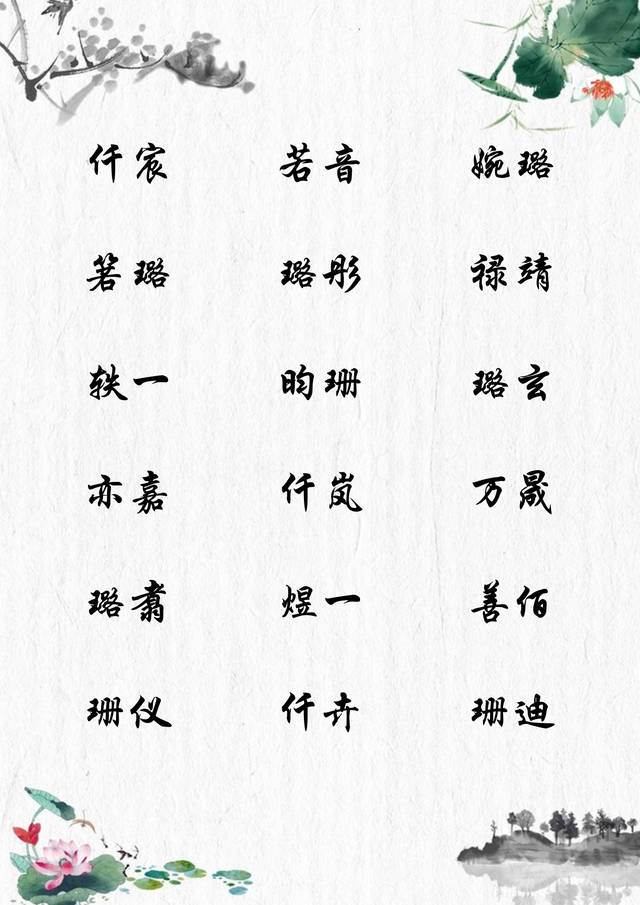 仟宸 若音 婉璐
箬璐 璐彤 禄靖
轶一 昀珊 璐玄
亦嘉 仟岚 万晟
璐翥 煜一 善佰
珊仪 仟卉 珊迪